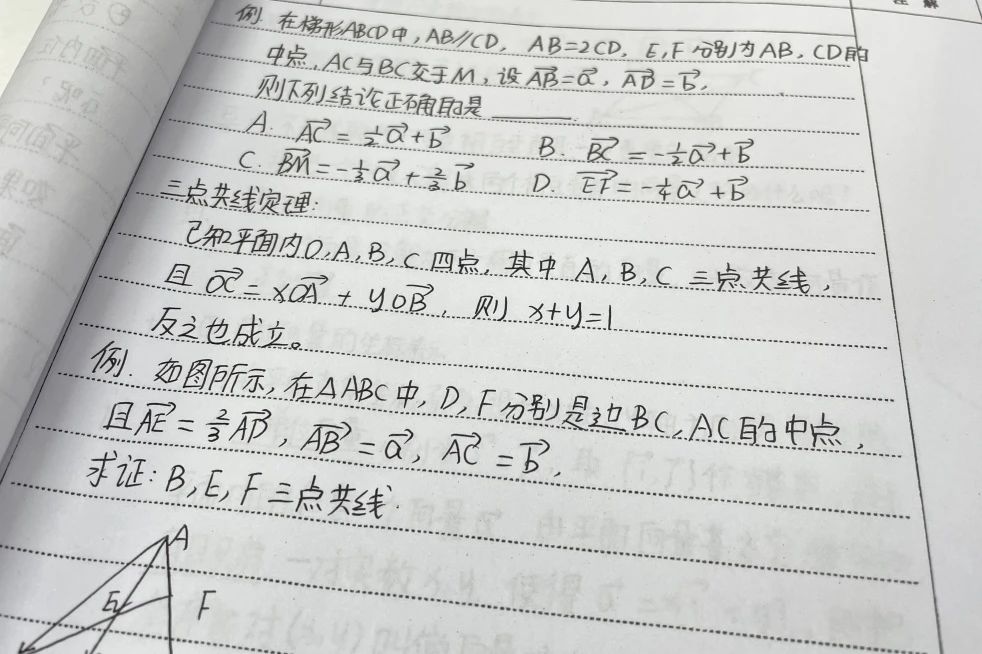 注 解
例. 在梯形ABCD中, AB//CD, AB=2CD, E,F分别为AB, CD的
中点, AC与BC交于M, 设 AB=a, AD=b,
则下列结论正确的是 ______.
A. AC = 1/2 a + b B. BC = -1/2 a + b
C. BM = -1/3 a + 2/3 b D. EF = -1/4 a + b
三点共线定理:
已知平面内O,A,B,C四点, 其中A,B,C三点共线,
且 OC = xOA + yOB, 则 x+y=1
反之也成立。
例. 如图所示, 在△ABC中, D,F分别是边BC, AC的中点,
且AE = 2/3 AD, AB = a, AC = b,
求证: B,E,F三点共线.
A
E F